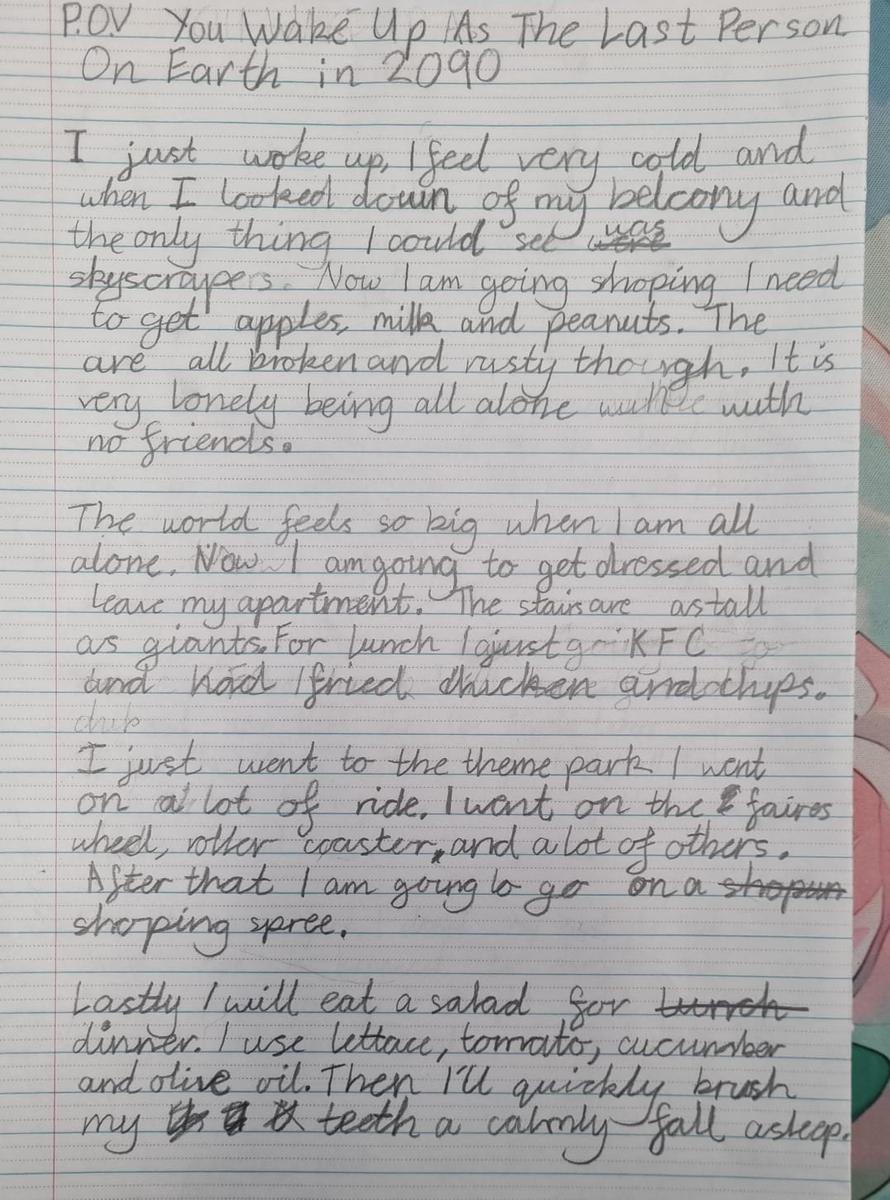 P.O.V You Wake Up As The Last Person
On Earth in 2090
I just woke up, I feel very cold and
when I looked down of my belcony and
the only thing I could see was
skyscrapers. Now I am going shoping I need
to get apples, milk and peanuts. The
are all broken and rusty though. It is
very lonely being all alone with
no friends.
The world feels so big when I am all
alone. Now I am going to get dressed and
leave my apartment. The stairs are as tall
as giants. For lunch I just KFC
and had fried chicken and chips.
I just went to the theme park I went
on a lot of ride. I went on the faires
wheel, roller coaster, and a lot of others.
After that I am going to go on a
shoping spree.
Lastly I will eat a salad for lunch
dinner. I use lettace, tomato, cucumber
and olive oil. Then I'll quickly brush
my teeth a calmly fall asleep.